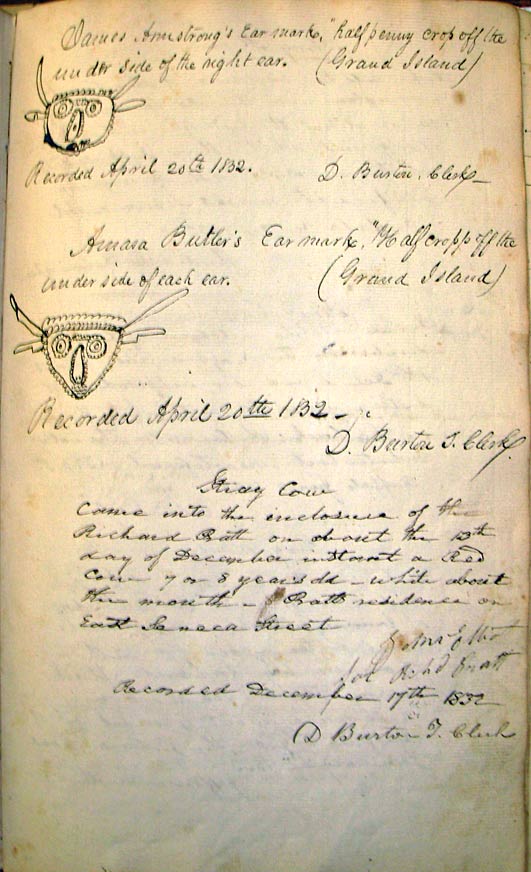 James Armstrong's Ear mark, "half penny crop off the
under side of the right ear. (Grand Island)
Recorded April 20th 1832. D. Burton, Clerk
Amasa Butler's Ear mark, "Half cropp off the
under side of each ear. (Grand Island)
Recorded April 20th 1832
D. Burton T. Clerk
Stray Cow
Came into the inclosure of the
Richard Pratt on about the 13th
day of December instant a Red
Cow 7 or 8 years old - white about
the mouth - Pratt residence on
East Seneca Street
John
for Pratt
Recorded December 17th 1832
D Burton T. Clerk